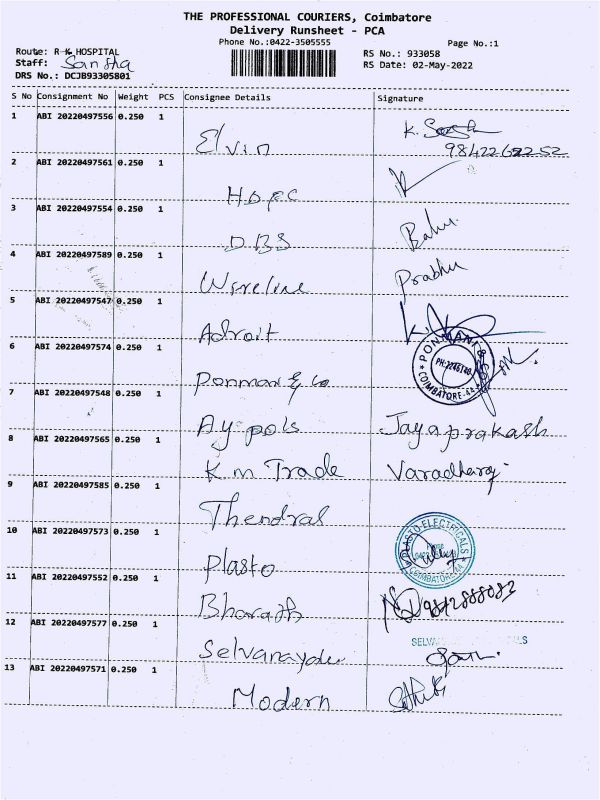 THE PROFESSIONAL COURIERS, Coimbatore
Delivery Runsheet - PCA
Phone No.:0422-3505555
Page No.:1
Route: R K HOSPITAL
RS No.: 933058
Staff:
RS Date: 02-May-2022
DRS No.: DCJB93305801
S No Consignment No Weight PCS Consignee Details Signature
1 ABI 20220497556 0.250 1
Elvin K.
2 ABI 20220497561 0.250 1
HDFC
3 ABI 20220497554 0.250 1
DBS Babu
4 ABI 20220497589 0.250 1
Wireline Prabhu
5 ABI 20220497547 0.250 1
Adroit
6 ABI 20220497574 0.250 1
Ponmani & Co PONMANI & COIMBATORE-44
7 ABI 20220497548 0.250 1
Ay pols Jayaprakash
8 ABI 20220497565 0.250 1
K M Trade Varadharaj
9 ABI 20220497585 0.250 1
Thendral
10 ABI 20220497573 0.250 1
Plasto PLASTO ELECTRICALS COIMBATORE-44
11 ABI 20220497552 0.250 1
Bharath
12 ABI 20220497577 0.250 1
Selvanayaki
13 ABI 20220497571 0.250 1
Modern